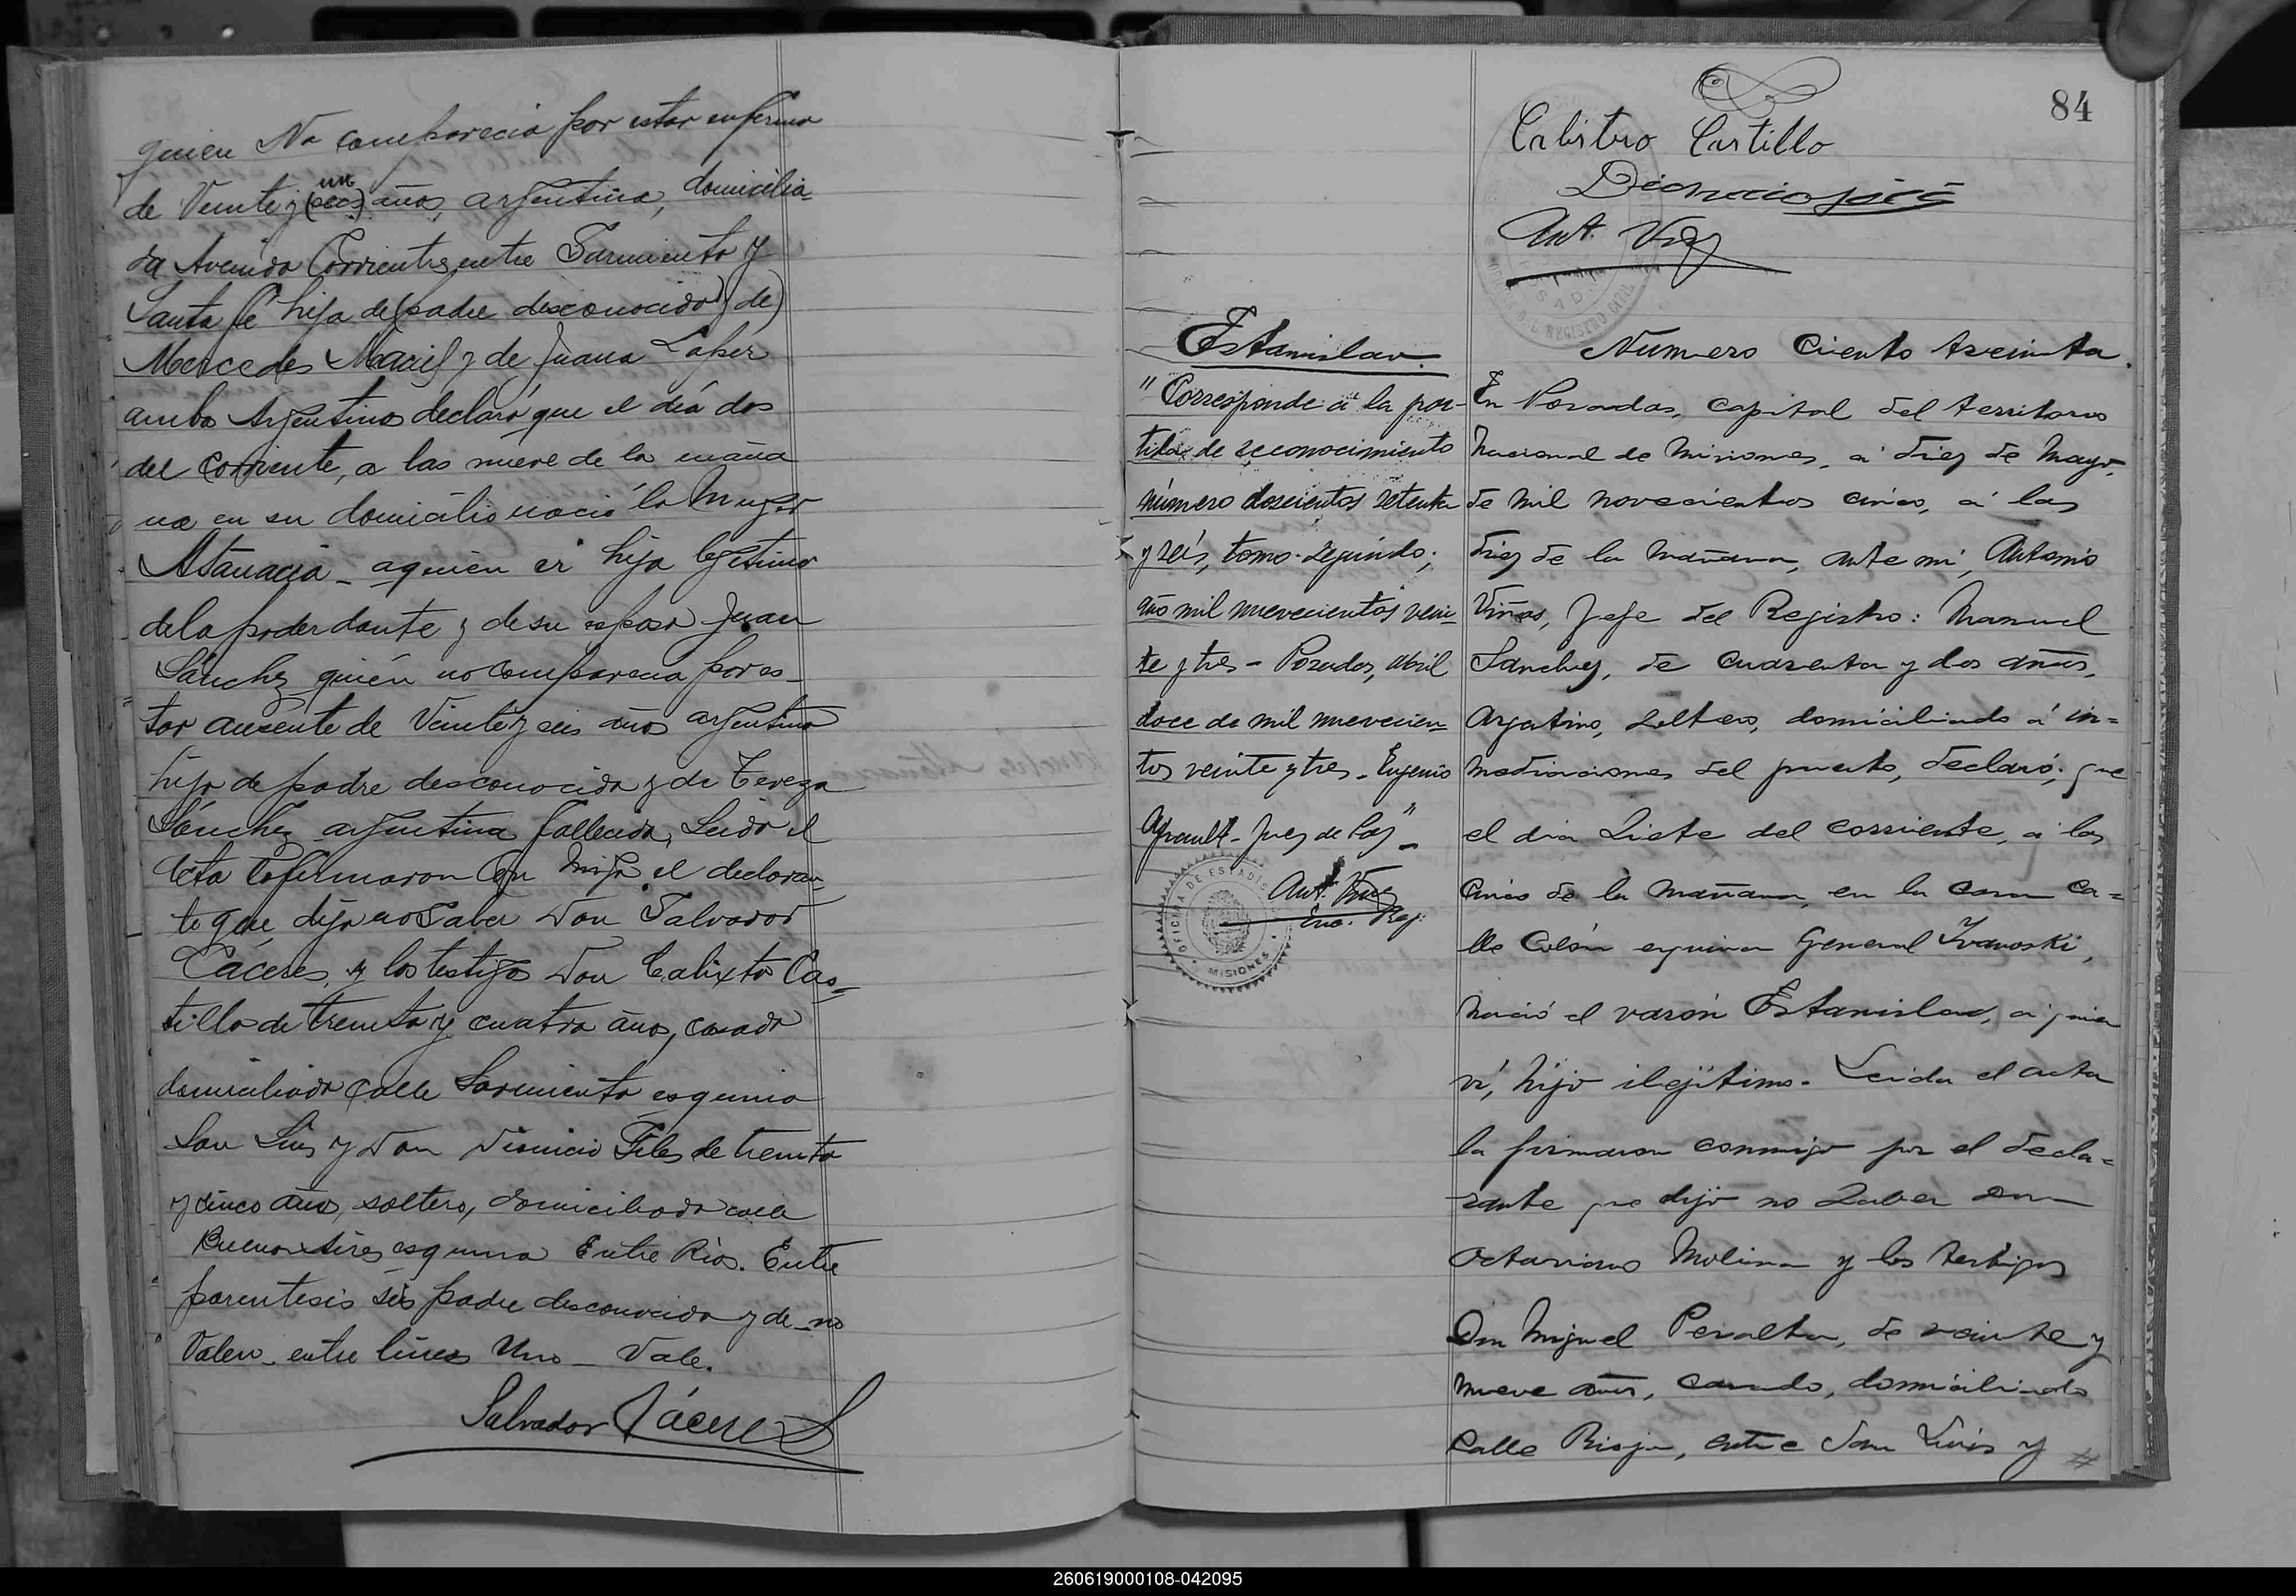 quien No comparecia por estar enferma
de Veinte y (seis) un años, argentina, domicilia-
da Avenida Corrientes entre Sarmiento y
Santa Fé hija de (padre desconocido y de)
Mercedes Maciel y de Juana Lopez
ambos Argentinos declaró que el día dos
del corriente, a las nueve de la maña
na en su domicilio nació la Muger
Atanacia - a quien ví hija legitima
de la poderdante y de su esposo Juan
Sánchez quién no comparecia por es-
tar ausente de Veinte y seis años argentino
hijo de padre desconocido y de Tereza
Sánchez argentina fallecida, Leida el
Acta la firmaron con migo el declaran-
te que dijo no Saber Don Salvador
Cáceres, y los testigos Don Calixto Cas-
tillo de treinta y cuatro años, casado
domiciliado calle Sarmiento esquina
San Luis y Don Dionicio Files de treinta
y cinco años, soltero, domiciliado calle
Buenos Aires esquina Entre Rios. Entre
parentesis séis padre desconocido y de - no
Valen - entre lineas Uno - Vale.
Salvador Cáceres
84
Calistro Castillo
Ant. Viñas
Estanislao.
"Corresponde á la par-
tida de reconocimiento
número doscientos setenta
y seis, tomo segundo,
año mil nuevecientos vein-
te y tres - Posadas, abril
doce de mil nuevecien-
tos veinte y tres - Eugenio
Juez de Paz" -
Ant. Viñas
Enc. Reg.
OFICINA DE ESTADIS
MISIONES
Número Ciento treinta.
En Posadas, capital del territorio
Nacional de Misiones, á diez de Mayo,
de mil novecientos cinco, á las
diez de la mañana, ante mí, Antonio
Viñas, Jefe del Registro: Manuel
Sanchez, de cuarenta y dos años,
Argentino, soltero, domiciliado á in=
mediaciones del puerto, declaró; que
el dia siete del corriente, á las
cinco de la mañana, en la casa ca=
lle Colón esquina General Ivanoski,
nació el varón Estanislao, á quien
ví, hijo ilegítimo. Leida el acta
la firmaron conmigo por el decla=
rante que dijo no saber don
Octaviano Molina y los testigos
Don Miguel Peralta, de veinte y
nueve años, casado, domiciliado
calle Rioja, entre San Luis y
260619000108-042095